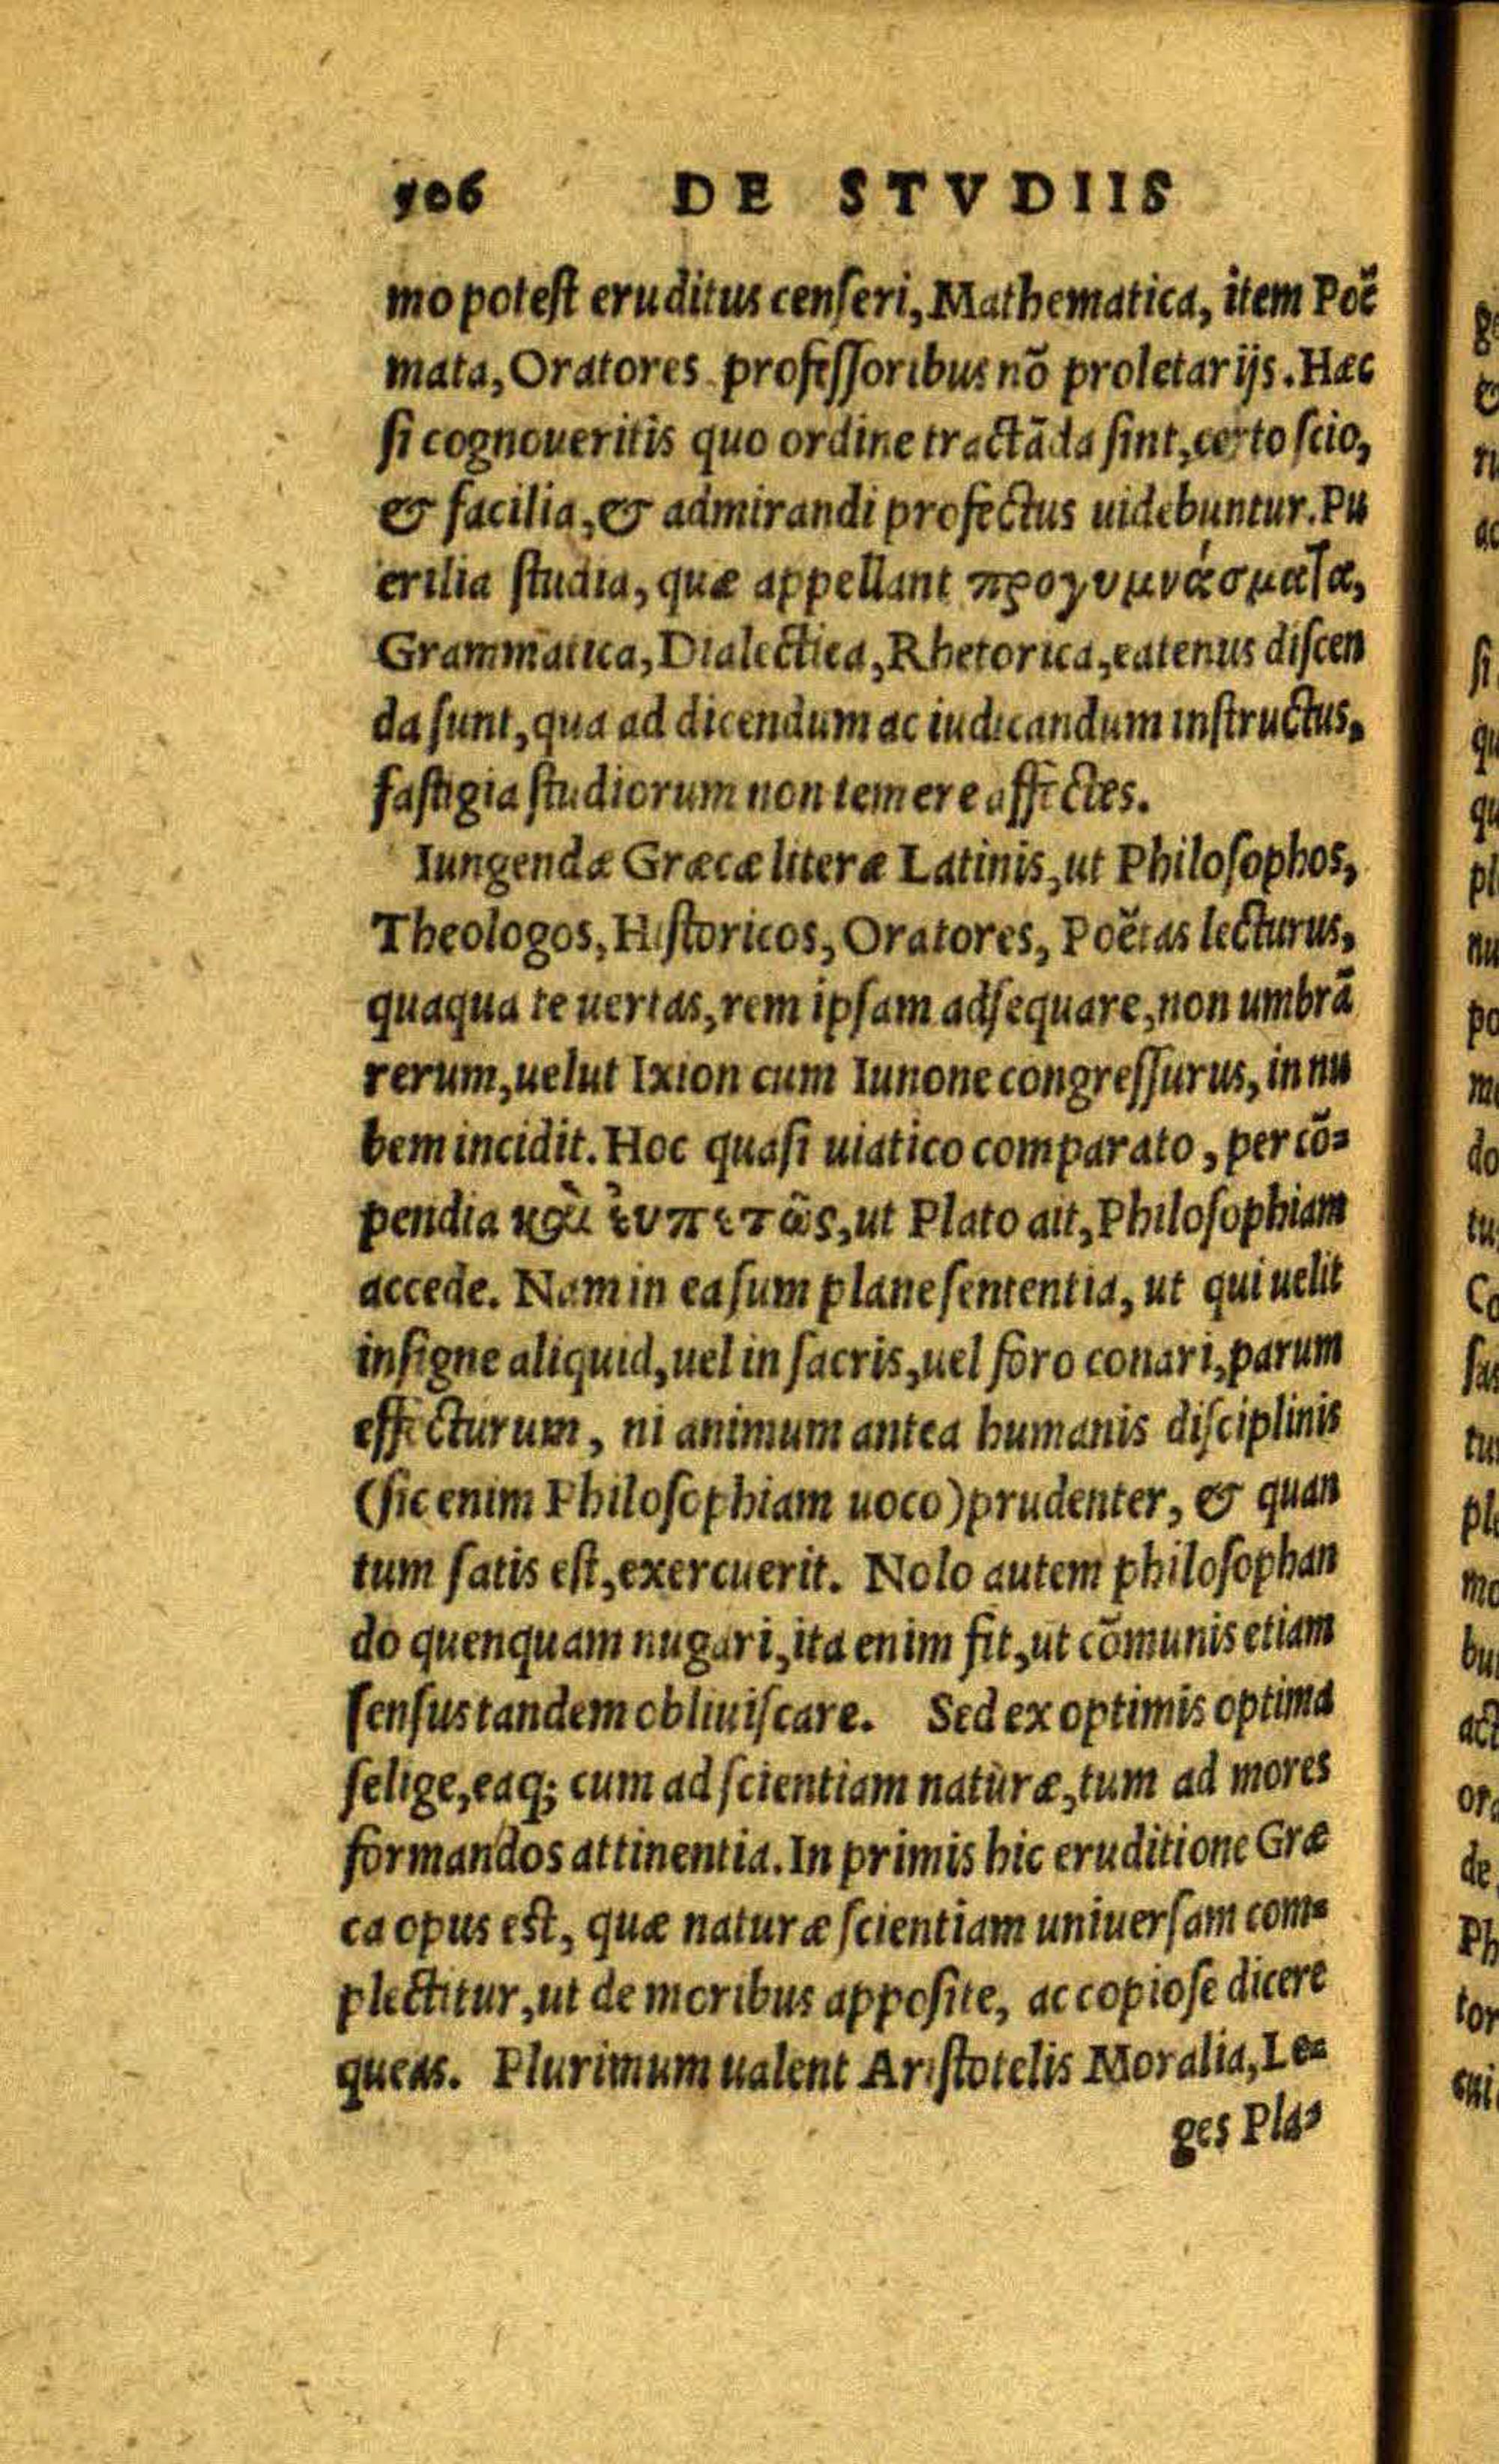 506 DE STVDIIS
mo potest eruditus censeri, Mathematica, item Poë
mata, Oratores professoribus nõ proletarijs. Hæc
si cognoueritis quo ordine tractãda sint, certo scio,
& facilia, & admirandi profectus uidebuntur. Pu
erilia studia, quæ appellant προγυμνάσματα,
Grammatica, Dialectica, Rhetorica, eatenus discen
da sunt, qua ad dicendum ac iudicandum instructus,
fastigia studiorum non temere affectes.
Iungendæ Græcæ literæ Latinis, ut Philosophos,
Theologos, Historicos, Oratores, Poëtas lecturus,
quaqua te uertas, rem ipsam adsequare, non umbrã
rerum, uelut Ixion cum Iunone congressurus, in nu
bem incidit. Hoc quasi uiatico comparato, per cõ=
pendia καὶ ἐυπετῶς, ut Plato ait, Philosophiam
accede. Nam in ea sum plane sententia, ut qui uelit
insigne aliquid, uel in sacris, uel foro conari, parum
effecturum, ni animum antea humanis disciplinis
(sic enim Philosophiam uoco) prudenter, & quan
tum satis est, exercuerit. Nolo autem philosophan
do quenquam nugari, ita enim fit, ut cõmunis etiam
sensus tandem obliuiscare. Sed ex optimis optima
selige, eaq; cum ad scientiam naturæ, tum ad mores
formandos attinentia. In primis hic eruditione Græ
ca opus est, quæ naturæ scientiam uniuersam com=
plectitur, ut de moribus apposite, ac copiose dicere
queas. Plurimum ualent Aristotelis Moralia, Le=
ges Pla=